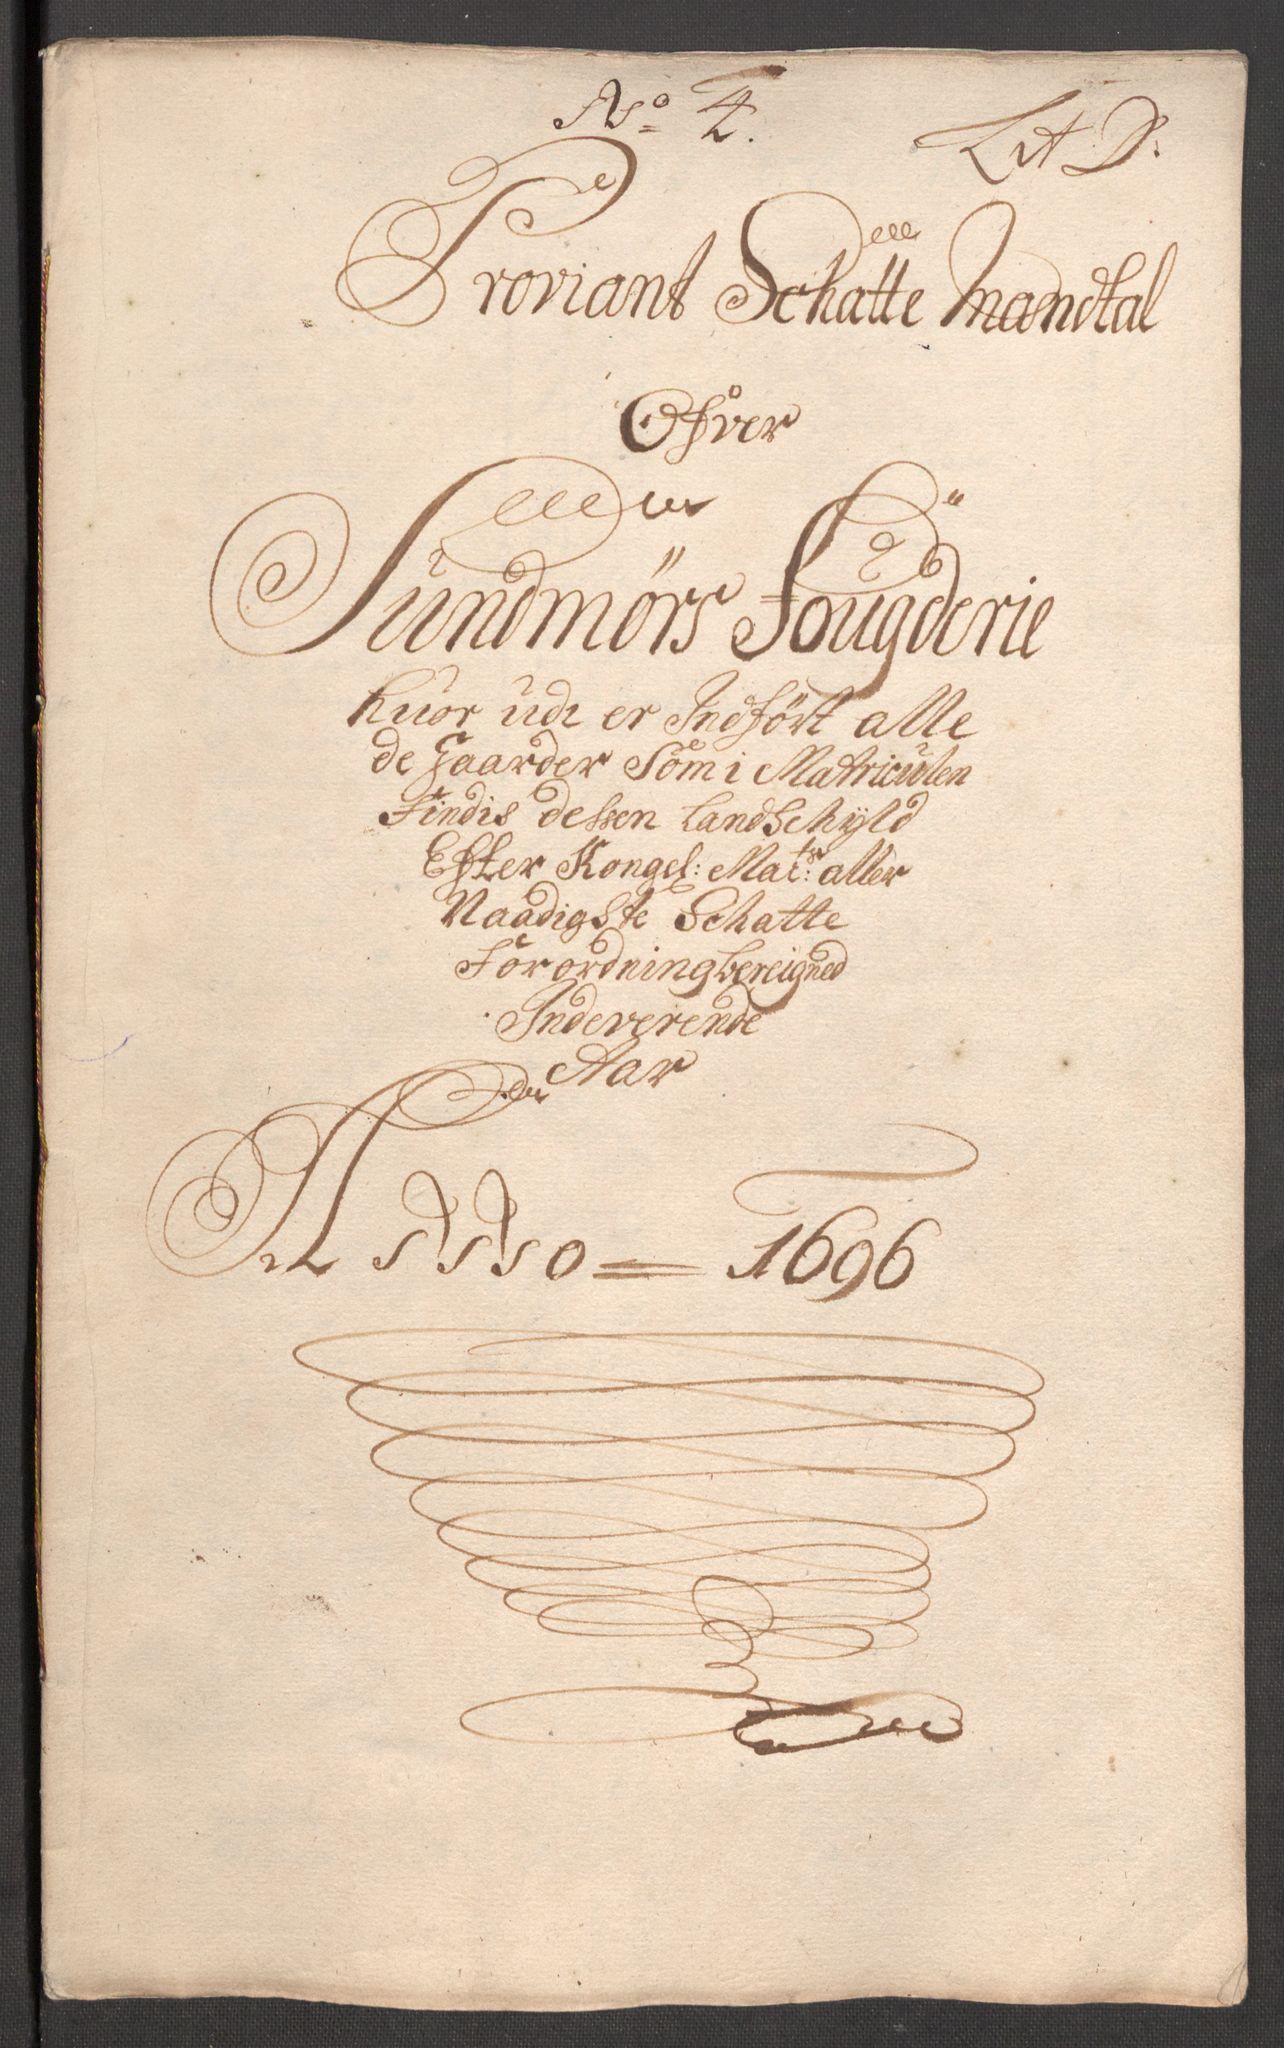 No 4. Lit D:
Proviant Schatte Mandtal
Ofver
Sundmørs Fougderie
huor udi er Indført alle
de Gaarder Som i Matriculen
Findis dessen Landschyld
Effter Kongel: Mai:ts aller
Naadigste Schatte
Forordning bereigned
Indeverende
Aar
Anno = 1696